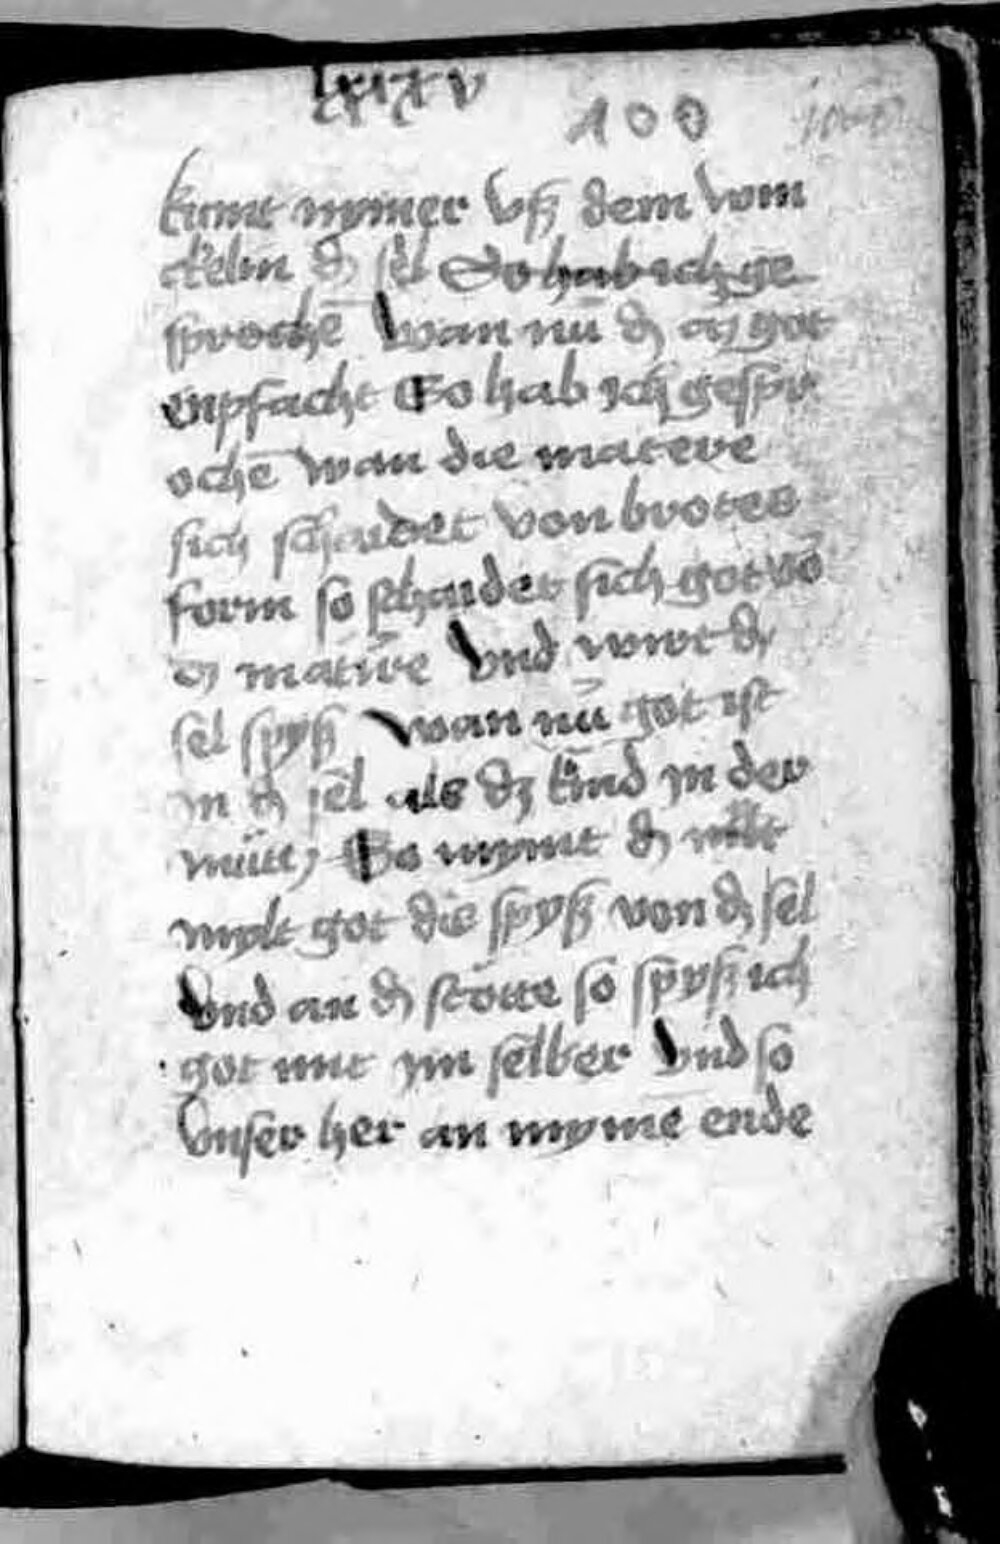 lxxxxv
100
kumt nymer vß dem wom
ckelin dʼ sel So hab ich ge
sprochē Wan nū dʼ mʒ got
enpfacht So hab ich gespr
ochē wan die matere
sich schaidet von brotes
form so schaidet sich got vō
dʼ matūre Vnd wirt dʼ
sel spyß Wan nū got ist
in dʼ sel als dʒ kind in der
mūttʼ So nymt dʼ
mylt got die spyß von dʼ sel
Vnd an dʼ stötte so spyß ich
got mit im selber Vnd so
Vnser her an myme ende